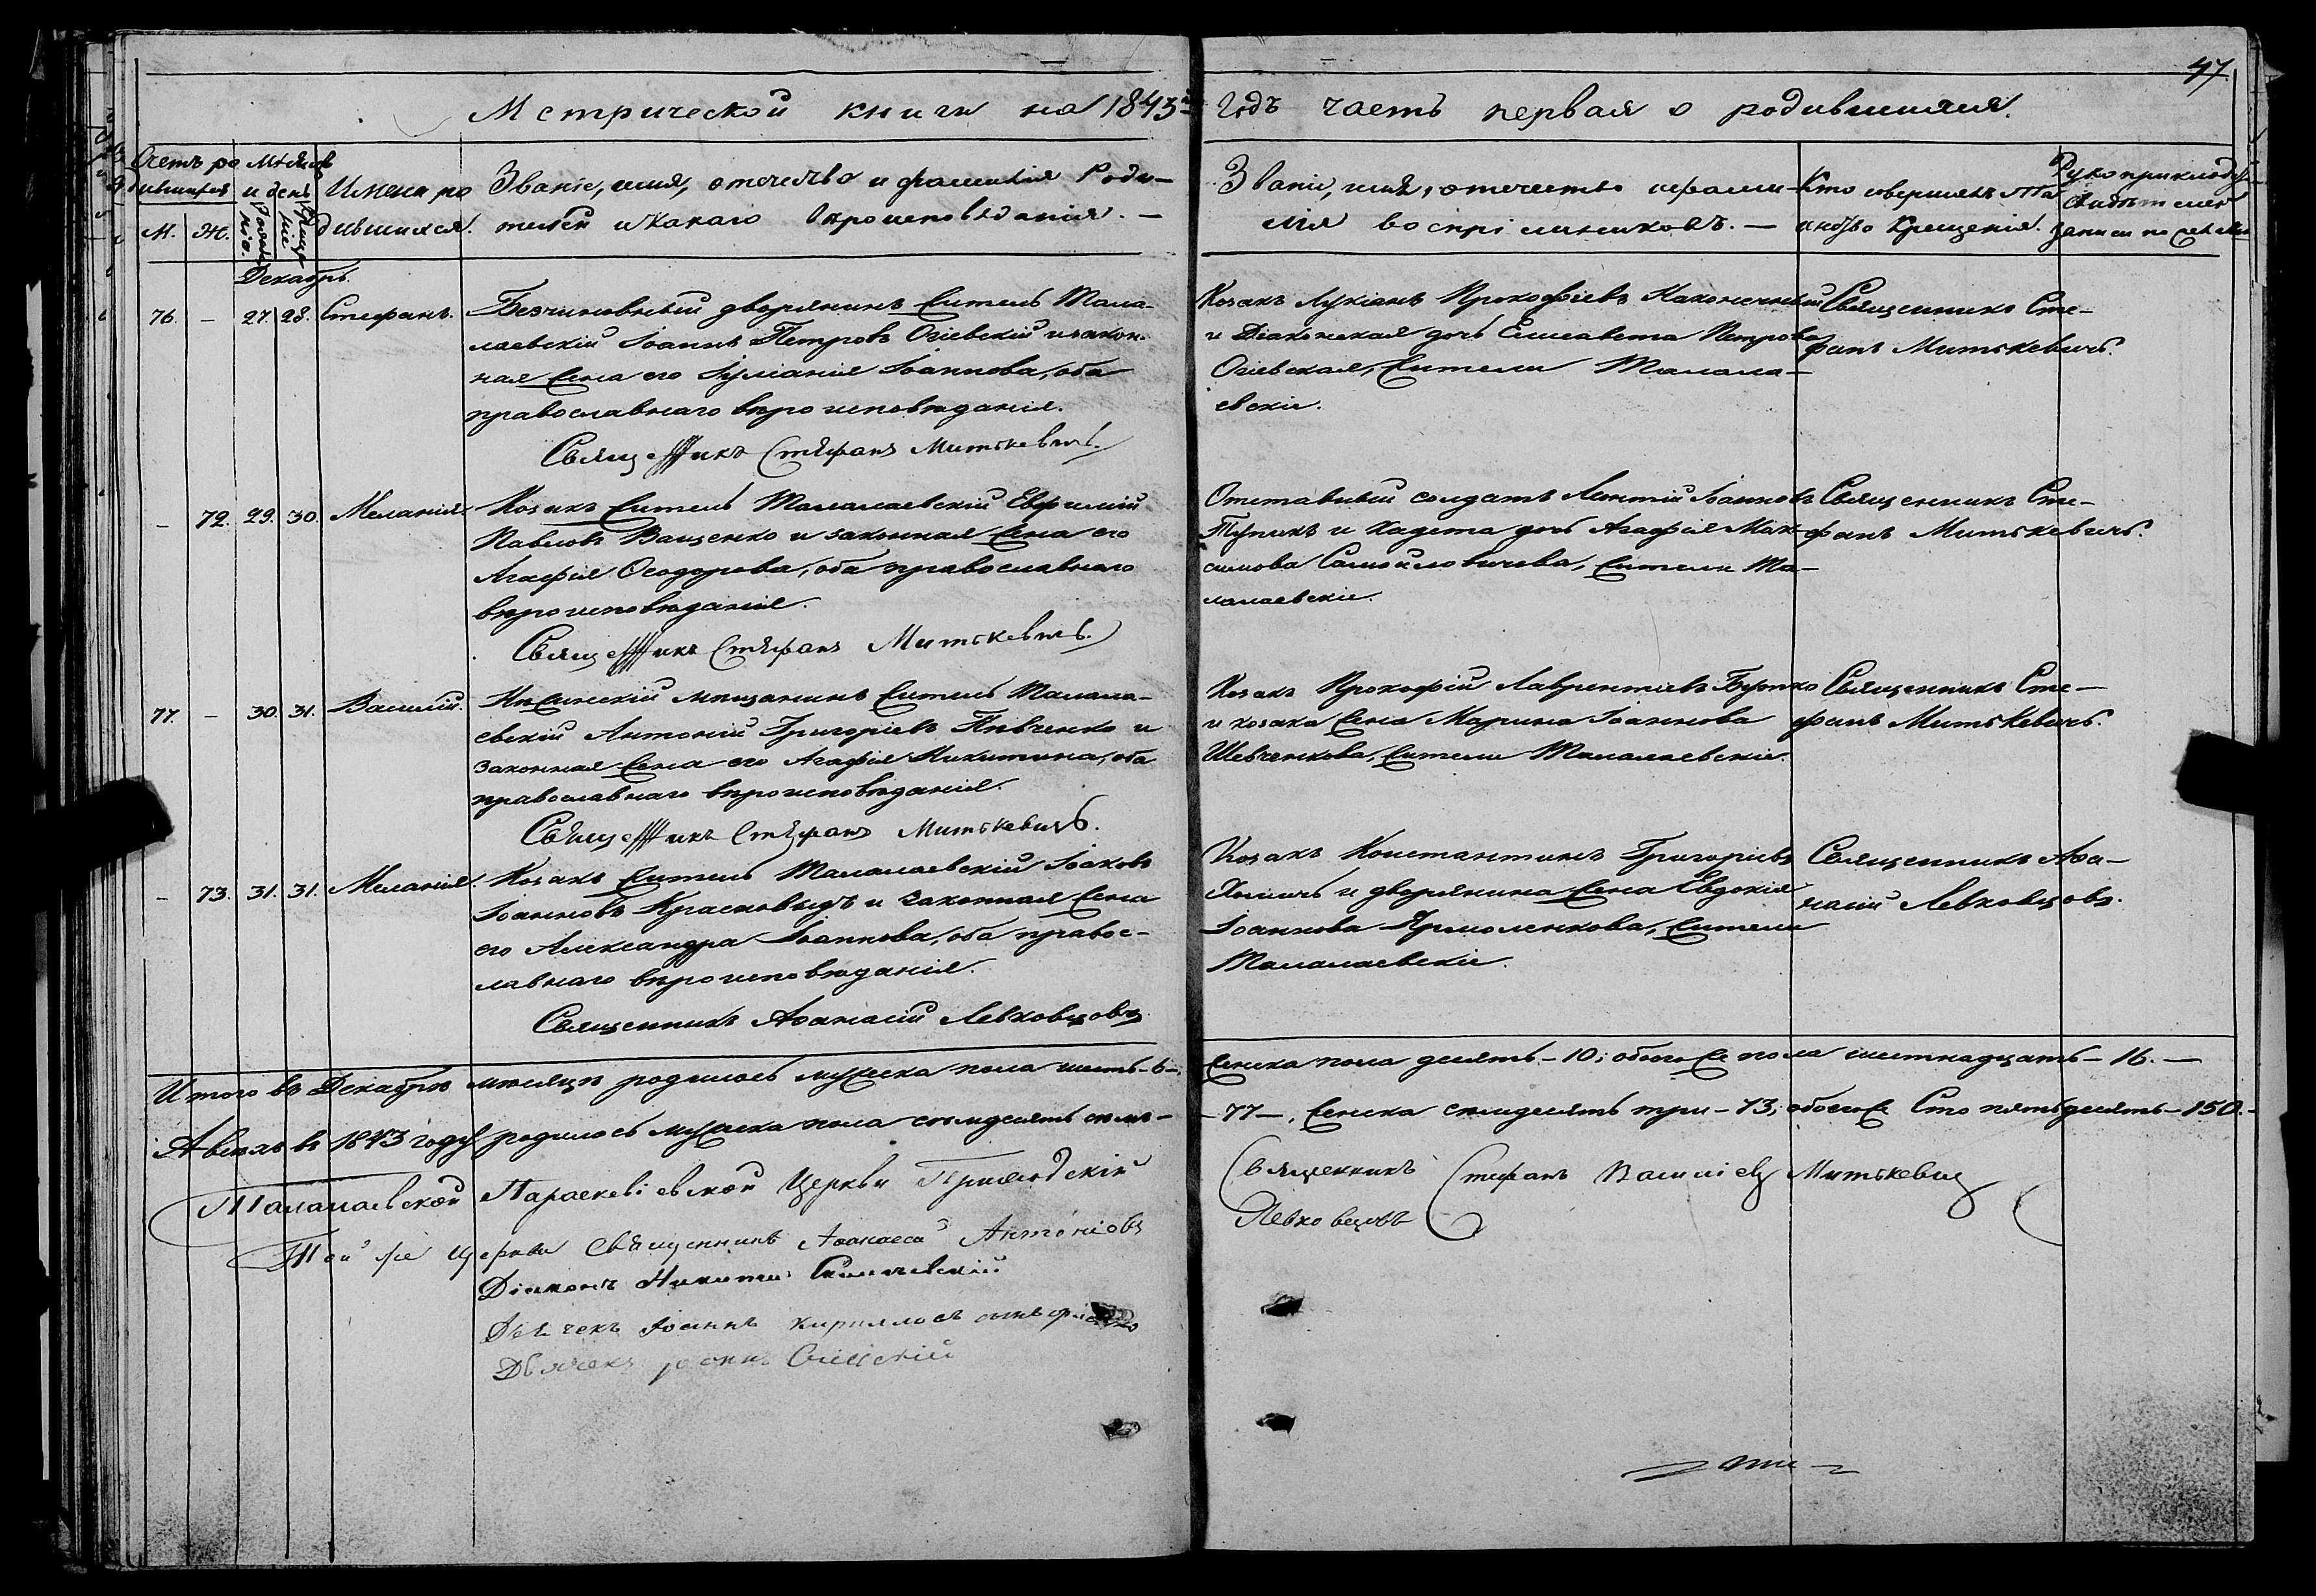 47.
Метрической книги на 1843й Годъ часть первая о родившихся.
Счетъ ро
дившихся
М. Ж.
Мѣсяцъ
и день
рожде
нія.
креще
нія
Имена ро
дившихся.
Званіе, имя, отечество и фамилія Роди-
телей и какаго вѣроисповѣданія. —
Званіе, имя, отечество и фами-
лія воспріемниковъ. —
Кто совершалъ Та
инство Крещенія.
Рукоприкладс
свидѣтелей
записи по
Декабрь.
76. — 27. 28. Стефанъ.
Безчиновный дворянинъ житель Тала-
лаевскій Іоаннъ Петровъ Огіевскій и закон-
ная жена его Іуліанія Іоаннова, оба
православнаго вѣроисповѣданія.
Священникъ Стефанъ Митькевичъ.
Козакъ Лукіанъ Прокофіевъ Наконечный
и Діаконская дочь Елисавета Петрова
Огіевская, жители Талала-
евскіе.
Священникъ Сте-
фанъ Митькевичъ.
— 72. 29. 30. Меланія.
Козакъ житель Талалаевскій Евфимій
Павловъ Ващенко и законная жена его
Агафія Ѳеодорова, оба православнаго
вѣроисповѣданія.
Священникъ Стефанъ Митькевичъ.
Отставный солдатъ Леонтій Іоанновъ
Тупикъ и Кадета дочь Агафія Мак-
симова Самойловичева, жители Та-
лалаевскіе.
Священникъ Сте-
фанъ Митькевичъ.
77. — 30. 31. Василій.
Нѣжинскій мѣщанинъ житель Талала-
евскій Антоній Григоріевъ Пѣвченко и
законная жена его Агафія Никитина, оба
православнаго вѣроисповѣданія.
Священникъ Стефанъ Митькевичъ.
Козакъ Прокофій Лаврентіевъ Бутко
и козака жена Марина Іоаннова
Шевченкова, жители Талалаевскіе.
Священникъ Сте-
фанъ Митькевичъ.
— 73. 31. 31. Меланія.
Козакъ житель Талалаевскій Іаковъ
Іоанновъ Красновыдъ и законная жена
его Александра Іоаннова, оба правос-
лавнаго вѣроисповѣданія.
Священникъ Аѳанасій Левковцовъ
Козакъ Константинъ Григоріевъ
Хомичъ и дворянина жена Евдокія
Іоаннова Ярмоленкова, жители
Талалаевскіе.
Священникъ Аѳа-
насій Левковцовъ.
Итого въ Декабрѣ мѣсяцѣ родилось мужеска пола шесть – 6 –; женска пола десять – 10; обоего же пола шестнадцать – 16. —
А всѣхъ въ 1843 году родилось мужеска пола семдесять семь – 77 –, женска семдесять три – 73; обоего же Сто пятьдесять – 150. –
Талалаевской Параскевіевской Церкви Приходскій Священникъ Стефанъ Василіевъ Митькевичъ
Той же Церкви Священникъ Аѳанасій Антоніовъ Левковцовъ
Діаконъ Никита
Дьячекъ Іоаннъ Кирилловъ сынъ
Дьячекъ Іоаннъ Огіевскій